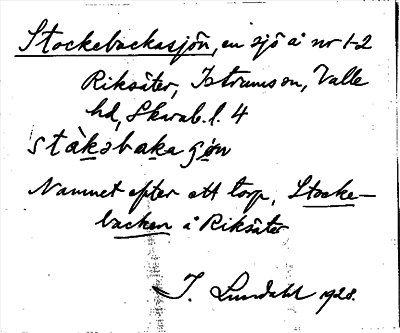 Stockebackasjön, en sjö å nr 1-2
Riksäter, Istrum sn, Valle
hd, Skarab. l. 4
stàkabaka sjøn
Namnet efter ett torp, Stocke-
backen å Riksäter
I. Lundahl 1928.